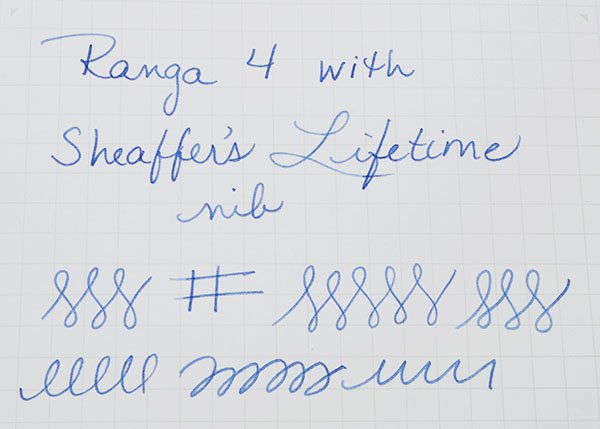 Ranga 4 with
Sheaffer's Lifetime
nib